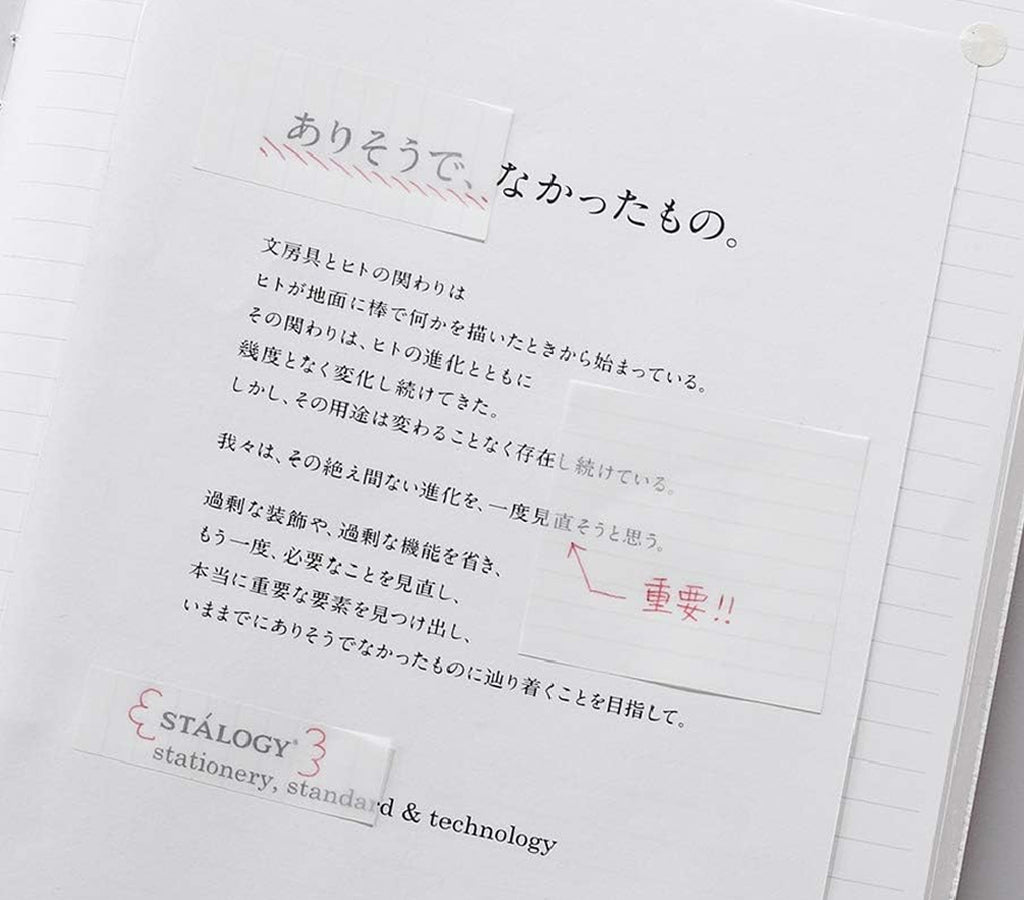 ありそうで、なかったもの。
文房具とヒトの関わりは
ヒトが地面に棒で何かを描いたときから始まっている。
その関わりは、ヒトの進化とともに
幾度となく変化し続けてきた。
しかし、その用途は変わることなく存在し続けている。
我々は、その絶え間ない進化を、一度見直そうと思う。
重要!!
過剰な装飾や、過剰な機能を省き、
もう一度、必要なことを見直し、
本当に重要な要素を見つけ出し、
いままでにありそうでなかったものに辿り着くことを目指して。
STÁLOGY®
stationery, standard & technology